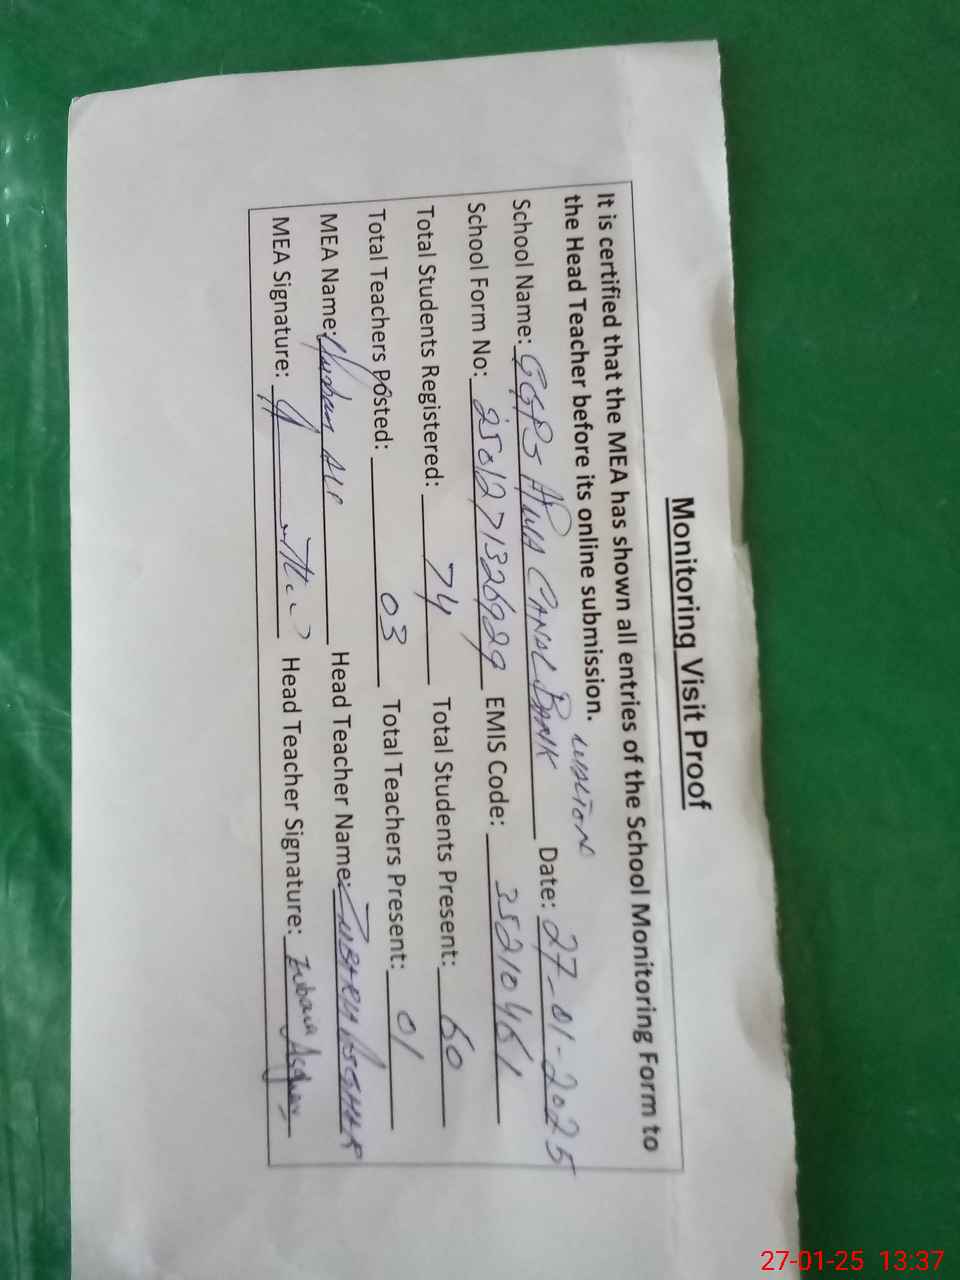 Monitoring Visit Proof
It is certified that the MEA has shown all entries of the School Monitoring Form to
the Head Teacher before its online submission. WALTON
School Name: GGPS CANAL BANK Date: 27-01-2025
School Form No: 2501271326929 EMIS Code: 35210461
Total Students Registered: 74 Total Students Present: 60
Total Teachers Posted: 03 Total Teachers Present: 01
MEA Name: ALI Head Teacher Name: ASGHAR
MEA Signature: Head Teacher Signature: Zubaria Asghar
27-01-25 13:37